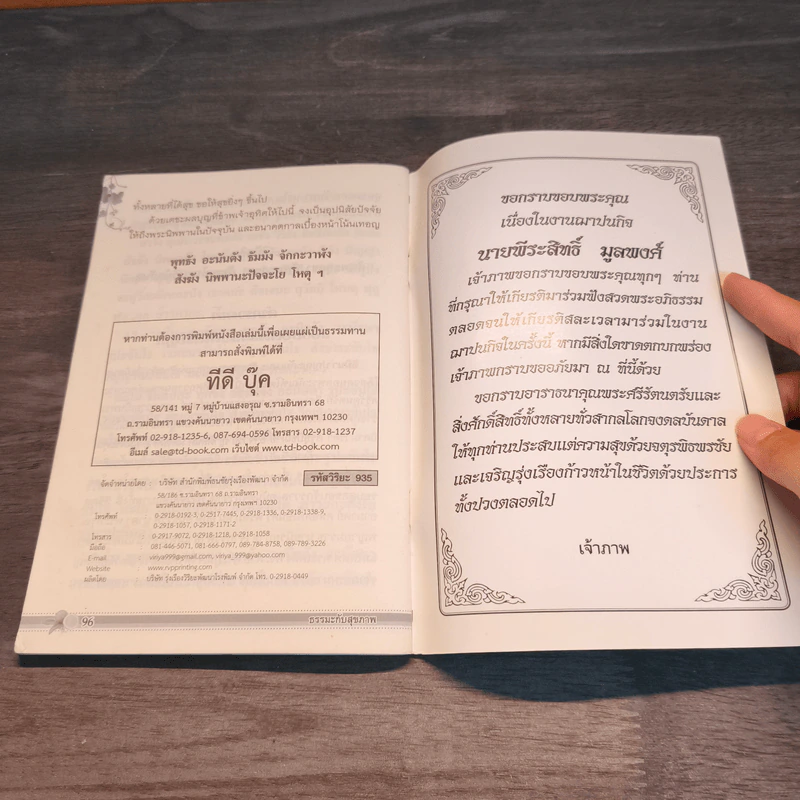 ทั้งหลายที่ได้สุข ขอให้สุขยิ่งๆ ขึ้นไป
ด้วยเดชะผลบุญที่ข้าพเจ้าอุทิศให้ไปนี้ จงเป็นอุปนิสัยปัจจัย
ให้ถึงพระนิพพานในปัจจุบัน และอนาคตกาลเบื้องหน้าโน้นเทอญ
พุทธัง อะนันตัง ธัมมัง จักกะวาฬัง
สังฆัง นิพพานะปัจจะโย โหตุ ฯ
หากท่านต้องการพิมพ์หนังสือเล่มนี้เพื่อเผยแผ่เป็นธรรมทาน
สามารถสั่งพิมพ์ได้ที่
ทีดี บุ๊ค
58/141 หมู่ 7 หมู่บ้านแสงอรุณ ซ.รามอินทรา 68
ถ.รามอินทรา แขวงคันนายาว เขตคันนายาว กรุงเทพฯ 10230
โทรศัพท์ 02-918-1235-6, 087-694-0596 โทรสาร 02-918-1237
อีเมล์ sale@td-book.com เว็บไซต์ www.td-book.com
จัดจำหน่ายโดย : บริษัท สำนักพิมพ์ธนชัยรุ่งเรืองพัฒนา จำกัด รหัสวิริยะ 935
58/186 ซ.รามอินทรา 68 ถ.รามอินทรา
แขวงคันนายาว เขตคันนายาว กรุงเทพฯ 10230
โทรศัพท์ : 0-2918-0192-5, 0-2517-7445, 0-2918-1336, 0-2918-1338-9,
0-2918-1057, 0-2918-1171-2
โทรสาร : 0-2917-9072, 0-2918-1218, 0-2918-1058
มือถือ : 081-446-5071, 081-666-0797, 089-784-8758, 089-789-3226
E-mail : viriya999@gmail.com, viriya_999@yahoo.com
Website : www.rvpprinting.com
ผลิตโดย : บริษัท รุ่งเรืองวิริยะพัฒนาโรงพิมพ์ จำกัด โทร. 0-2918-0449
96 ธรรมะกับสุขภาพ
ขอกราบขอบพระคุณ
เนื่องในงานฌาปนกิจ
นายพีระสิทธิ์ มูลพงศ์
เจ้าภาพขอกราบขอบพระคุณทุกๆ ท่าน
ที่กรุณาให้เกียรติมาร่วมฟังสวดพระอภิธรรม
ตลอดจนให้เกียรติสละเวลามาร่วมในงาน
ฌาปนกิจในครั้งนี้ หากมีสิ่งใดขาดตกบกพร่อง
เจ้าภาพกราบขออภัยมา ณ ที่นี้ด้วย
ขอกราบอาราธนาคุณพระศรีรัตนตรัยและ
สิ่งศักดิ์สิทธิ์ทั้งหลายทั่วสากลโลกจงดลบันดาล
ให้ทุกท่านประสบแต่ความสุขด้วยจตุรพิธพรชัย
และเจริญรุ่งเรืองก้าวหน้าในชีวิตด้วยประการ
ทั้งปวงตลอดไป
เจ้าภาพ